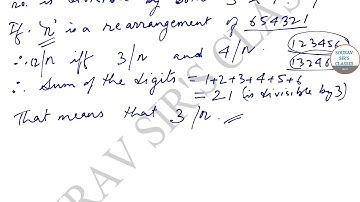 no. is divisible by both 3 & 4
If 'n' is a rearrangement of 654321
∴ 12/n iff 3/n and 4/n.
123456
13246
∴ Sum of the digits = 1+2+3+4+5+6
= 21 (is divisible by 3)
That means that 3/n.
SOURAV SIR'S CLASSES
SOURAV SIR'S CLAS